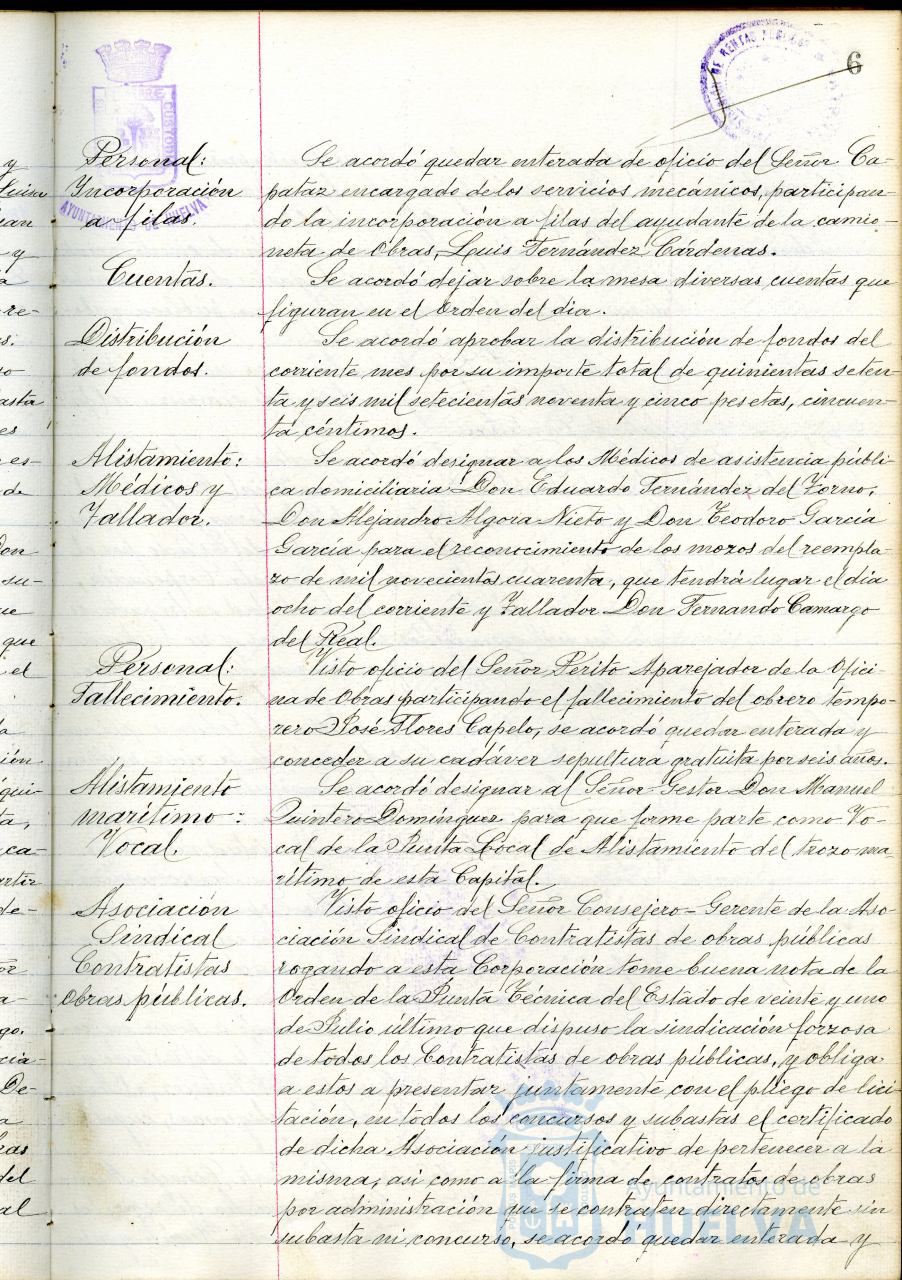 6
Personal:
Incorporación
a filas.
Se acordó quedar enterada de oficio del Señor Ca-
pataz encargado de los servicios mecánicos, participan-
do la incorporación a filas del ayudante de la camio-
neta de Obras, Luis Fernández Cárdenas.
Cuentas.
Se acordó dejar sobre la mesa diversas cuentas que
figuran en el Orden del dia.
Distribución
de fondos.
Se acordó aprobar la distribución de fondos del
corriente mes por su importe total de quinientas seten-
ta y seis mil setecientas noventa y cinco pesetas, cincuen-
ta céntimos.
Alistamiento:
Médicos y
Tallador.
Se acordó designar a los Médicos de asistencia públi-
ca domiciliaria Don Eduardo Fernández del Torno,
Don Alejandro Algora Nieto y Don Teodoro García
García para el reconocimiento de los mozos del reempla-
zo de mil novecientos cuarenta, que tendrá lugar el día
ocho del corriente y Tallador Don Fernando Camargo
del Real.
Personal:
Fallecimiento.
Visto oficio del Señor Perito Aparejador de la Ofici-
na de Obras participando el fallecimiento del obrero tempo-
rero José Flores Capelo, se acordó quedar enterada y
conceder a su cadáver sepultura gratuita por seis años.
Alistamiento
marítimo:
Vocal.
Se acordó designar al Señor Gestor Don Manuel
Quintero Domínguez para que forme parte como Vo-
cal de la Junta Local de Alistamiento del trozo ma-
rítimo de esta Capital.
Asociación
Sindical
Contratistas
Obras públicas.
Visto oficio del Señor Consejero-Gerente de la Aso-
ciación Sindical de Contratistas de obras públicas
rogando a esta Corporación tome buena nota de la
Orden de la Junta Técnica del Estado de veinte y uno
de Julio último que dispuso la sindicación forzosa
de todos los Contratistas de obras públicas, y obliga
a estos a presentar juntamente con el pliego de lici-
tación, en todos los concursos y subastas el certificado
de dicha Asociación justificativo de pertenecer a la
misma, asi como a la firma de contratos de obras
por administración que se contraten directamente sin
subasta ni concurso, se acordó quedar enterada y
AYUNTAMIENTO DE HUELVA
Ayuntamiento de
HUELVA